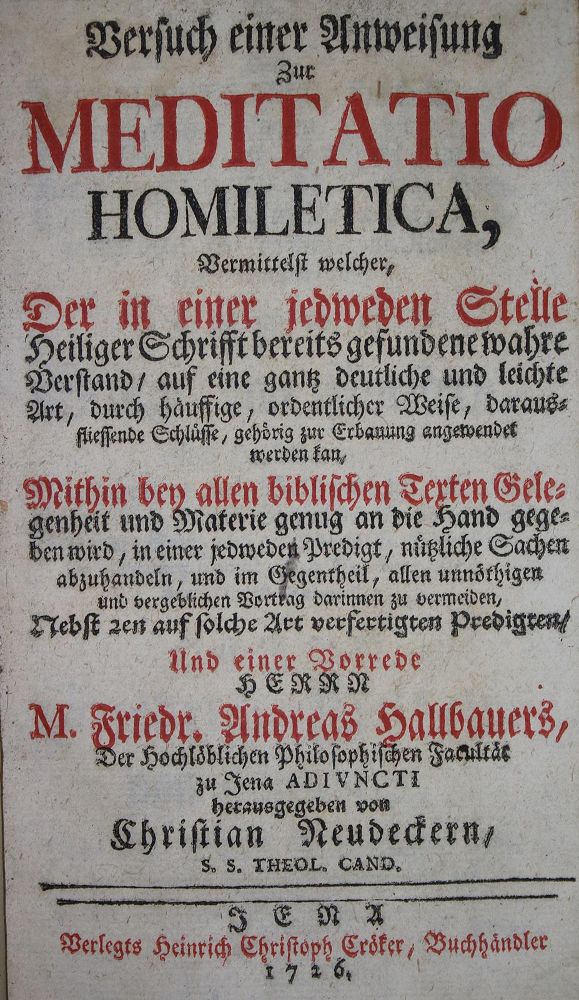 Versuch einer Anweisung
Zur
MEDITATIO
HOMILETICA,
Vermittelst welcher,
Der in einer jedweden Stelle
Heiliger Schrifft bereits gefundene wahre
Verstand/ auf eine gantz deutliche und leichte
Art, durch häuffige, ordentlicher Weise, daraus-
fliessende Schlüsse, gehörig zur Erbauung angewendet
werden kan,
Mithin bey allen biblischen Texten Gele-
genheit und Materie genug an die Hand gege-
ben wird, in einer jedweden Predigt, nützliche Sachen
abzuhandeln, und im Gegentheil, allen unnöthigen
und vergeblichen Vortrag darinnen zu vermeiden,
Nebst 2en auf solche Art verfertigten Predigten/
Und einer Vorrede
HERRN
M. Friedr. Andreas Hallbauers,
Der Hochlöblichen Philosophischen Facultät
zu Jena ADIVNCTI
herausgegeben von
Christian Neudeckern/
S. S. THEOL. CAND.
JENA
Verlegts Heinrich Christoph Cröker, Buchhändler
1726.